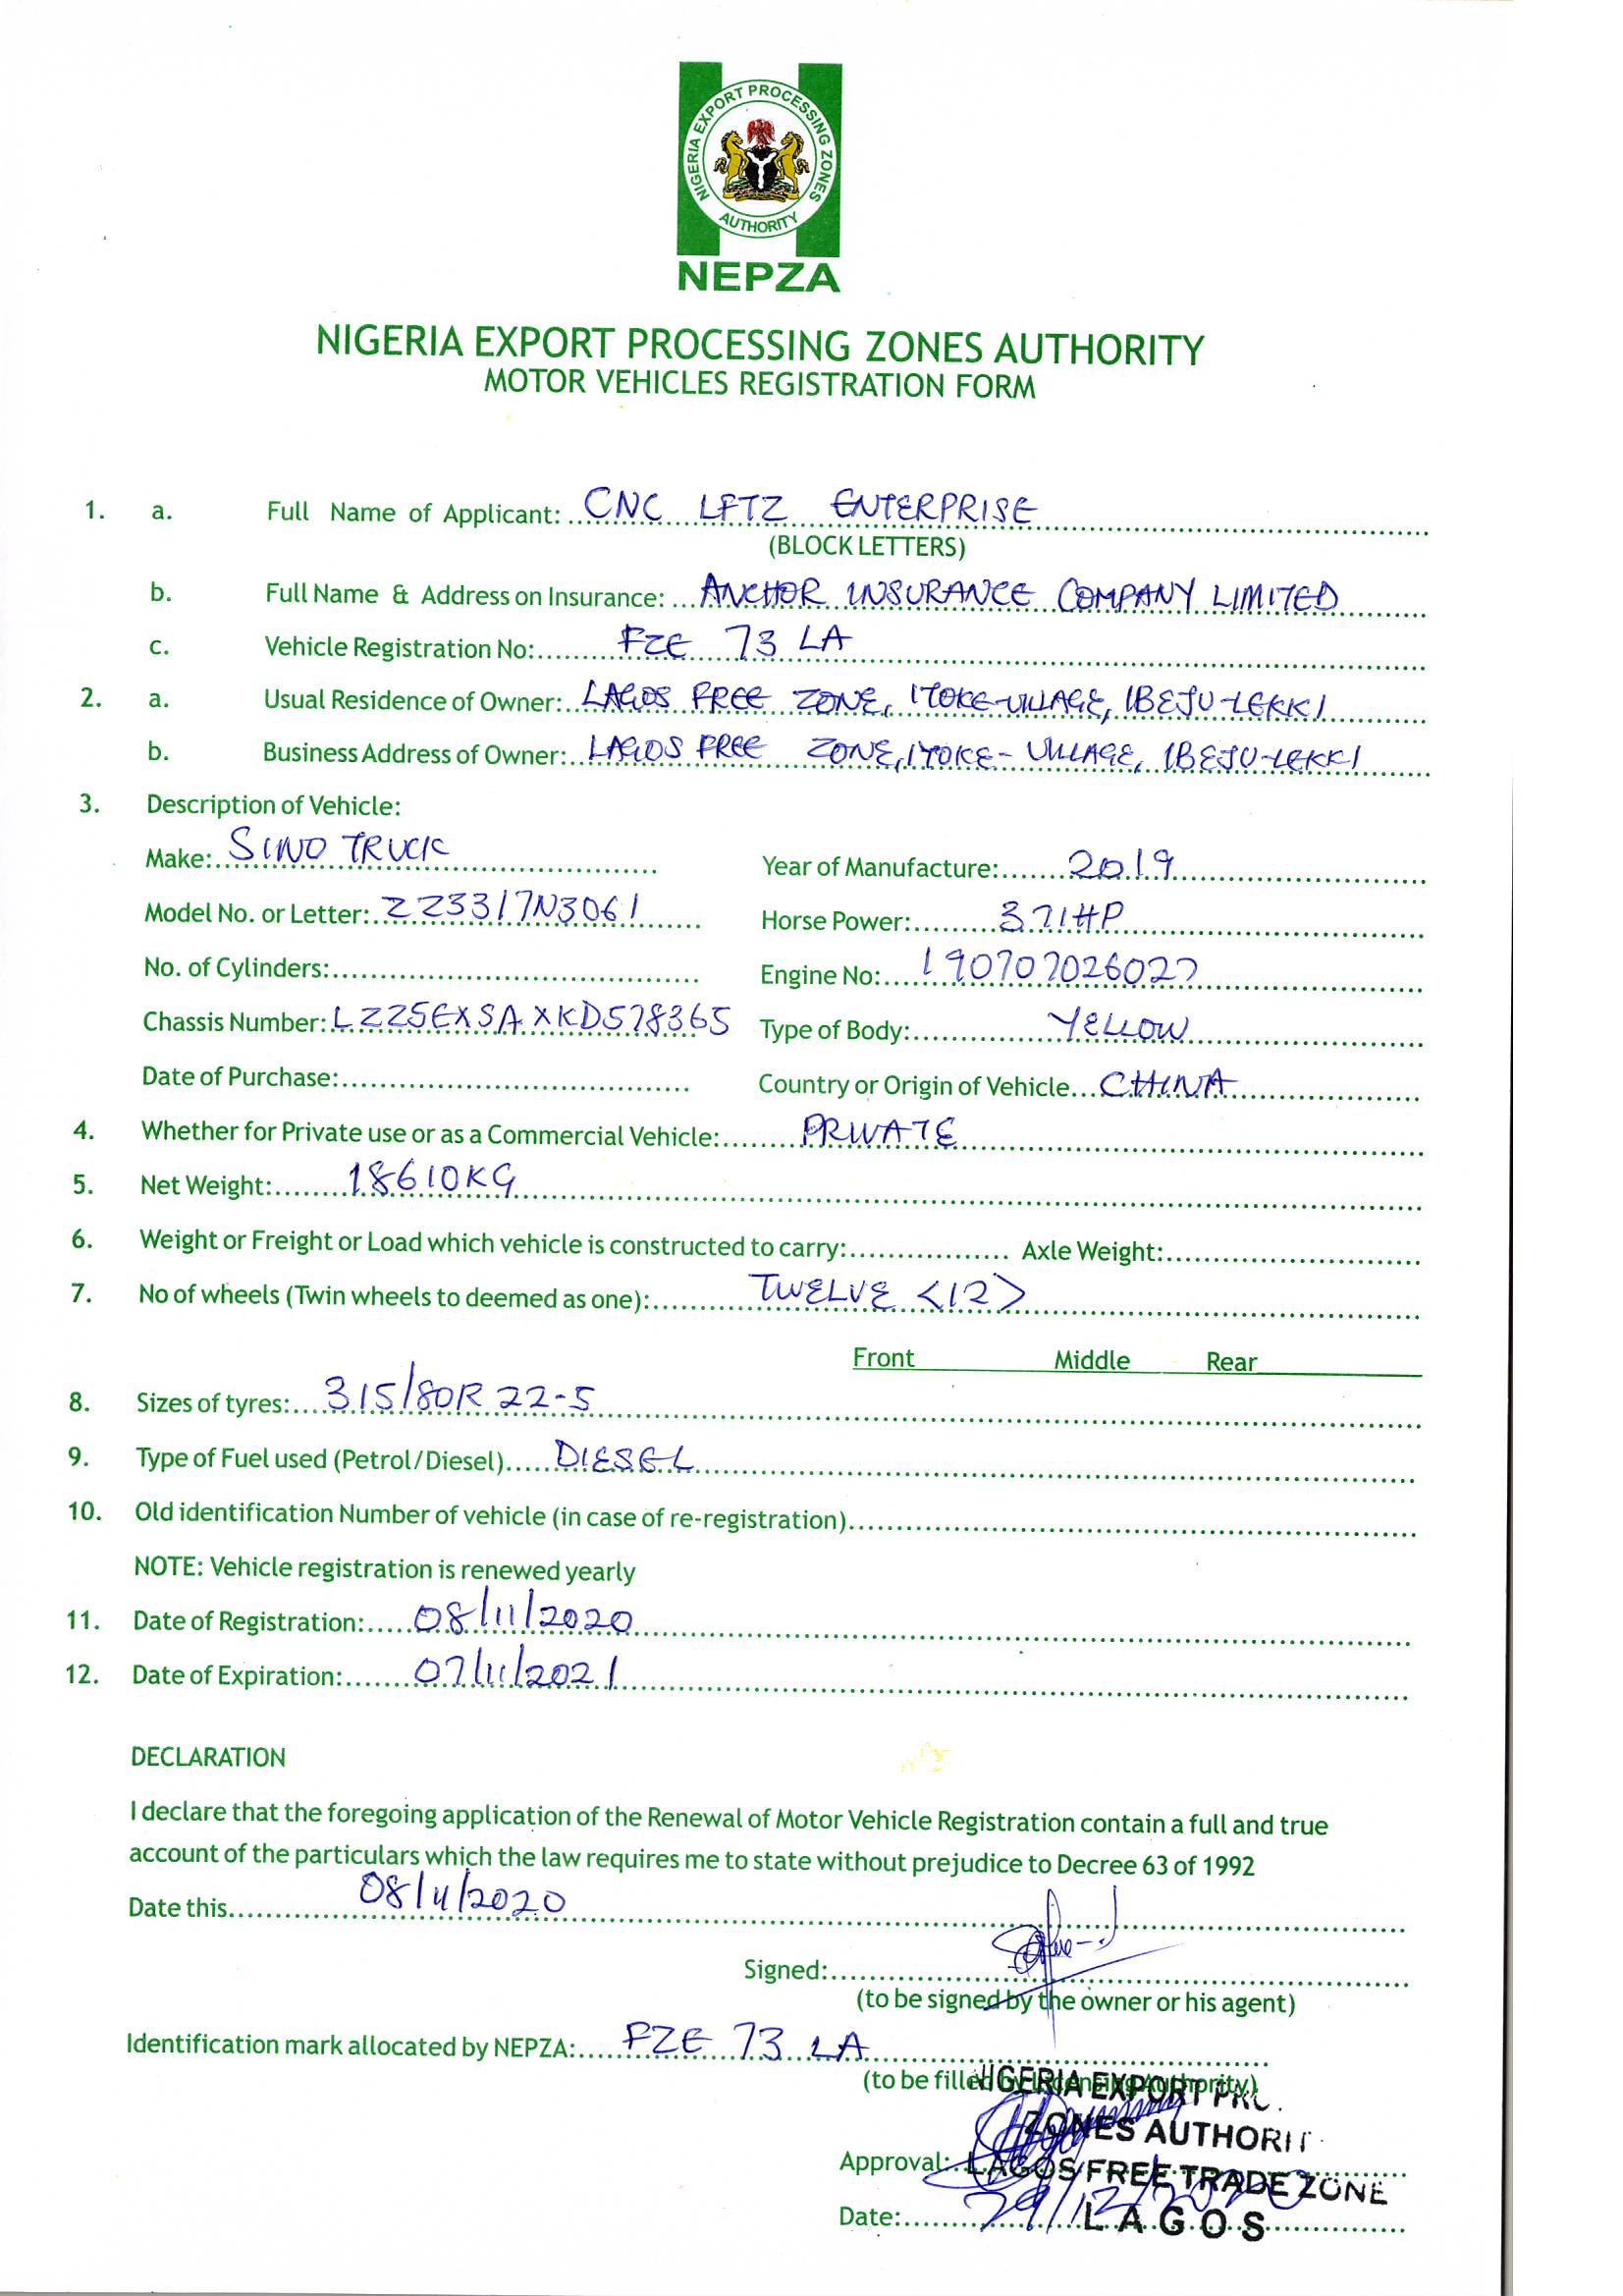 NIGERIA EXPORT PROCESSING ZONES
AUTHORITY
NEPZA
NIGERIA EXPORT PROCESSING ZONES AUTHORITY
MOTOR VEHICLES REGISTRATION FORM
1. a. Full Name of Applicant: CNC LFTZ ENTERPRISE
(BLOCK LETTERS)
b. Full Name & Address on Insurance: ANCHOR INSURANCE COMPANY LIMITED
c. Vehicle Registration No: FZE 73 LA
2. a. Usual Residence of Owner: LAGOS FREE ZONE, ITOKE-VILLAGE, IBEJU-LEKKI
b. Business Address of Owner: LAGOS FREE ZONE, ITOKE-VILLAGE, IBEJU-LEKKI
3. Description of Vehicle:
Make: SINO TRUCK Year of Manufacture: 2019
Model No. or Letter: ZZ3317N3061 Horse Power: 371HP
No. of Cylinders: Engine No: 190707026027
Chassis Number: LZZ5EXSAXKD578365 Type of Body: YELLOW
Date of Purchase: Country or Origin of Vehicle CHINA
4. Whether for Private use or as a Commercial Vehicle: PRIVATE
5. Net Weight: 18610KG
6. Weight or Freight or Load which vehicle is constructed to carry: Axle Weight:
7. No of wheels (Twin wheels to deemed as one): TWELVE <12>
Front Middle Rear
8. Sizes of tyres: 315/80R 22-5
9. Type of Fuel used (Petrol/Diesel) DIESEL
10. Old identification Number of vehicle (in case of re-registration)
NOTE: Vehicle registration is renewed yearly
11. Date of Registration: 08/11/2020
12. Date of Expiration: 07/11/2021
DECLARATION
I declare that the foregoing application of the Renewal of Motor Vehicle Registration contain a full and true
account of the particulars which the law requires me to state without prejudice to Decree 63 of 1992
Date this 08/11/2020
Signed:
(to be signed by the owner or his agent)
Identification mark allocated by NEPZA: FZE 73 LA
(to be filled by Licensing Authority)
IGERIA EXPORT PRC.
ZONES AUTHORIT
Approval: LAGOS FREE TRADE ZONE
Date: 29/12/2020 LAGOS